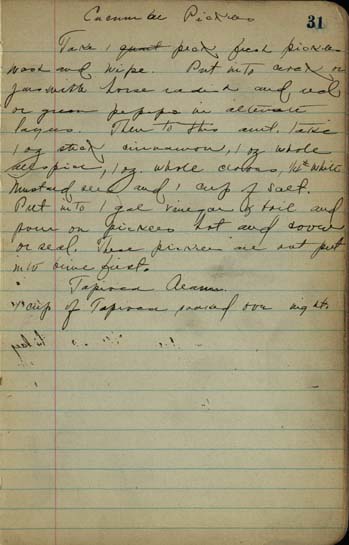 31
Cucumber Pickles
Take 1 quart peck fresh pickles
wash and wipe. Put into crock or
jars with horse radish and red
or green peppers in alternate
layers. Then to this amt. take
1 oz stick cinnamon, 1 oz whole
allspice, 1 oz. whole cloves, 1/4 lb white
mustard seed and 1 cup of salt.
Put into 1 gal vinegar & boil and
pour on pickles hot and cover
or seal. These pickles are not put
into brine first.
Tapioca Cream.
cup of Tapioca soaked over night.